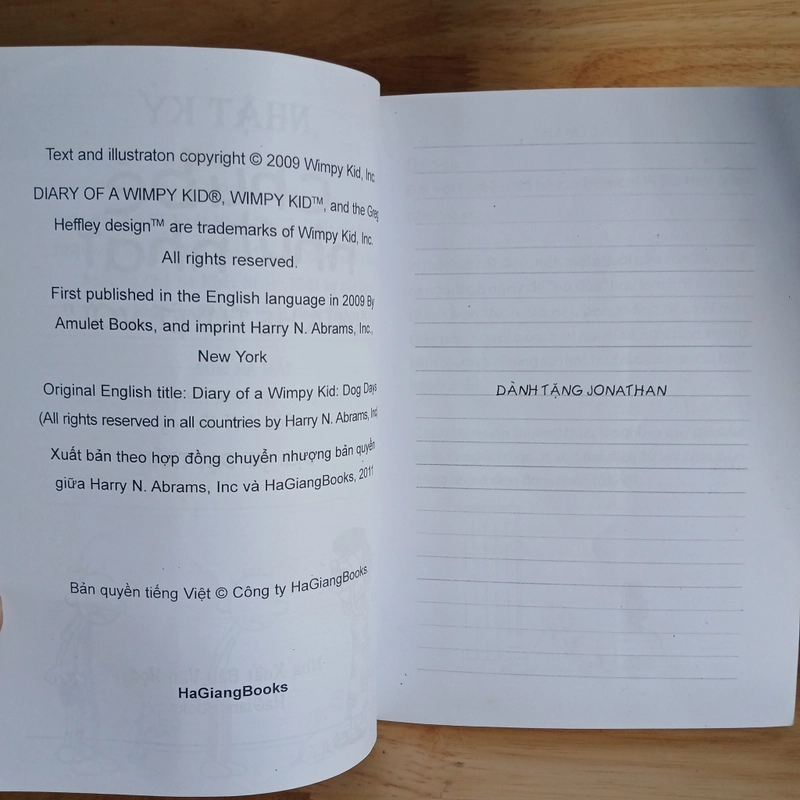 Text and illustraton copyright © 2009 Wimpy Kid, Inc.
DIARY OF A WIMPY KID®, WIMPY KID™, and the Greg
Heffley design™ are trademarks of Wimpy Kid, Inc.
All rights reserved.
First published in the English language in 2009 By
Amulet Books, and imprint Harry N. Abrams, Inc.,
New York
Original English title: Diary of a Wimpy Kid: Dog Days
(All rights reserved in all countries by Harry N. Abrams, Inc
Xuất bản theo hợp đồng chuyển nhượng bản quyền
giữa Harry N. Abrams, Inc và HaGiangBooks, 2011
Bản quyền tiếng Việt © Công ty HaGiangBooks
HaGiangBooks
DÀNH TẶNG JONATHAN